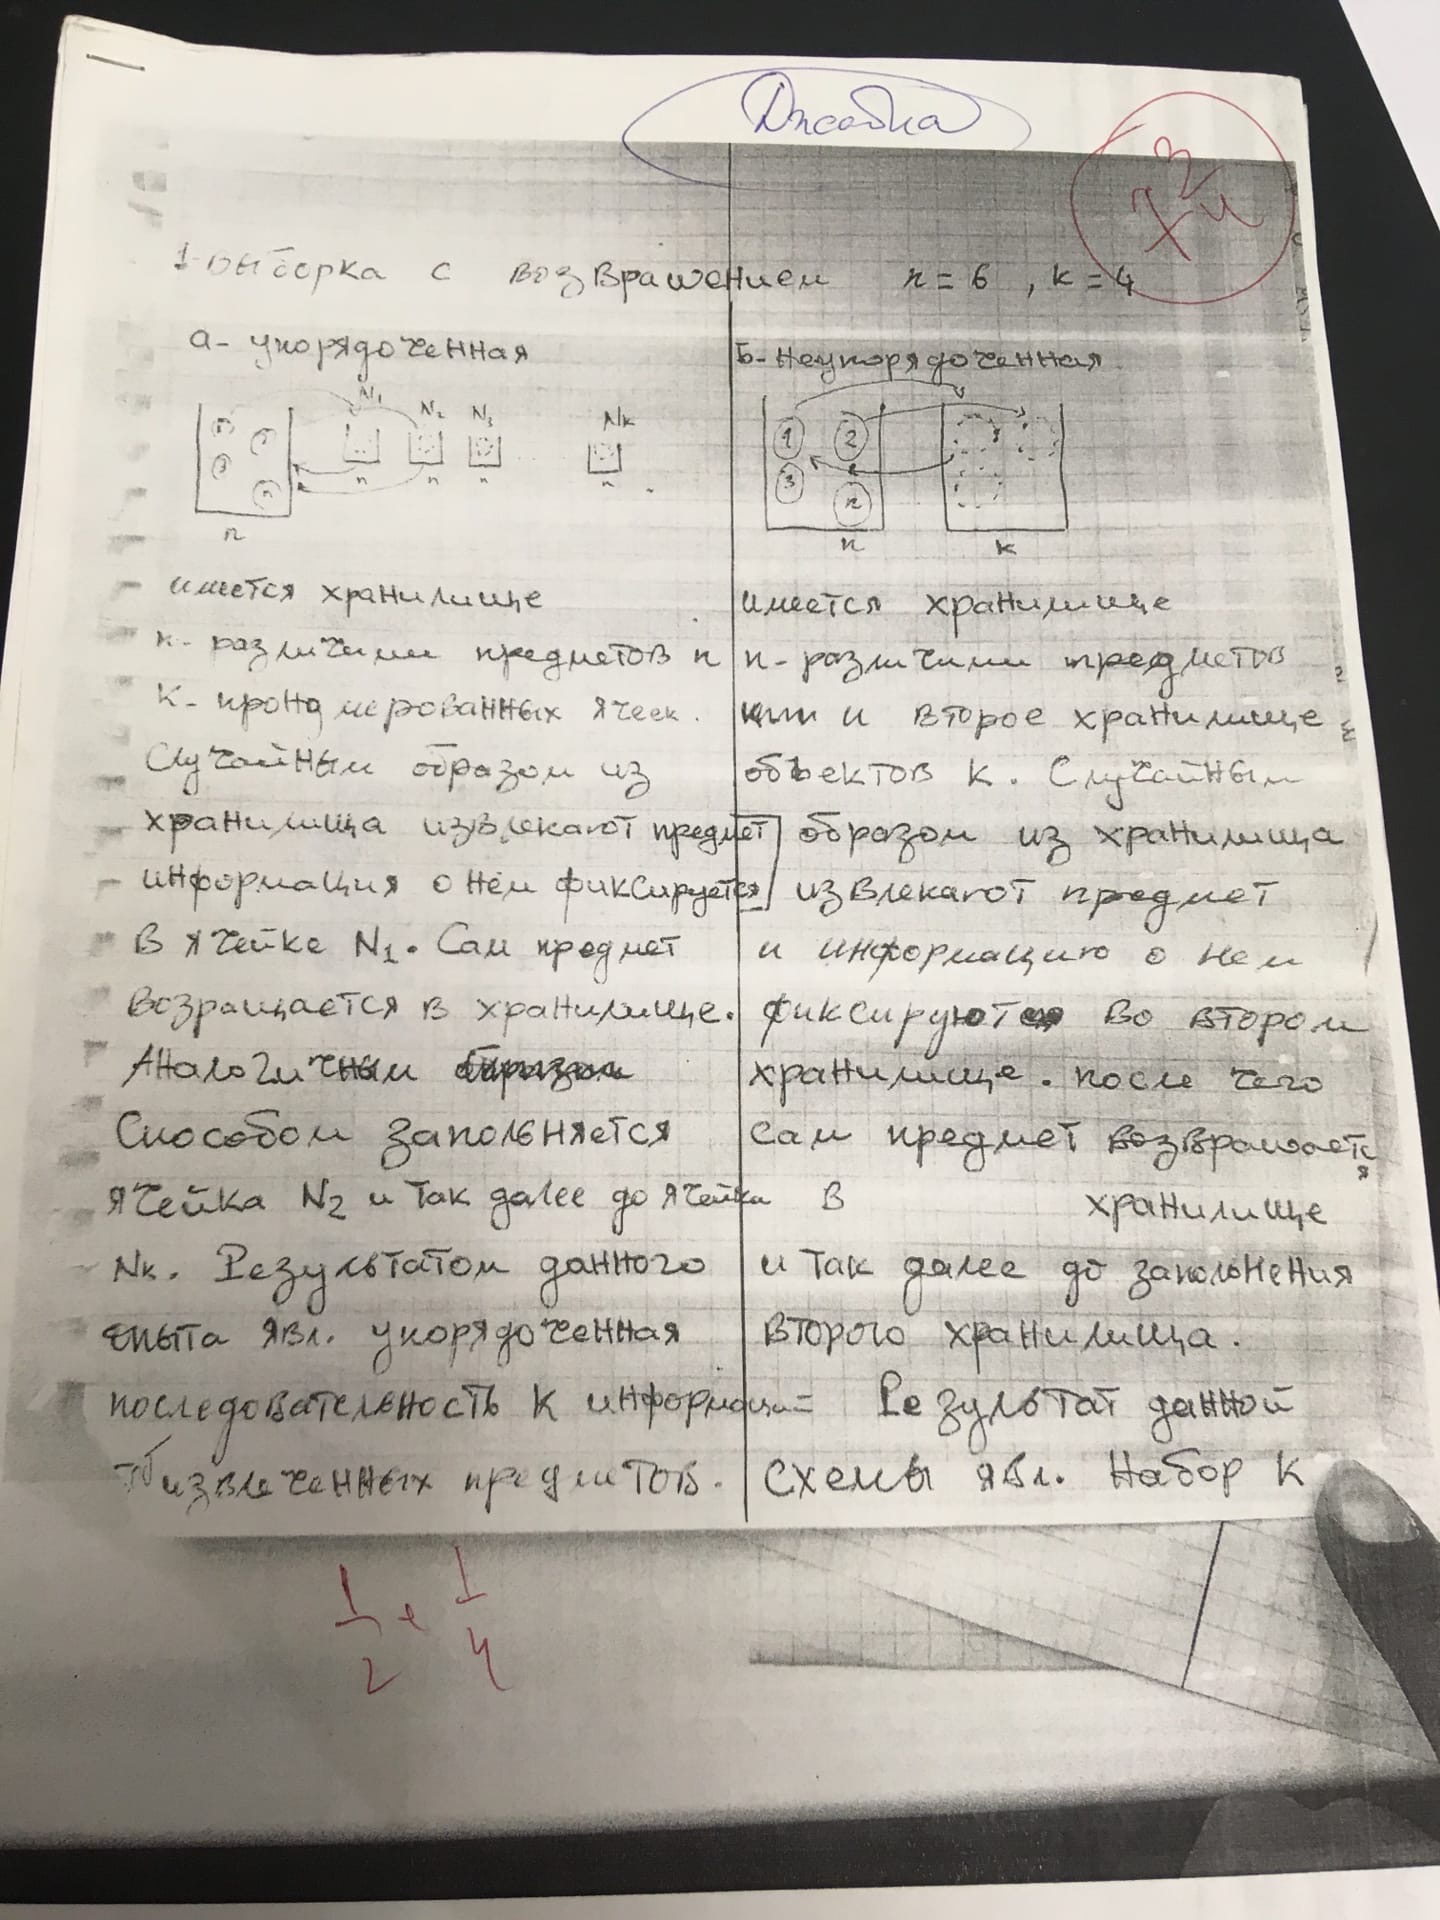 1-выборка с возвращением n = 6 , k = 4
а- упорядоченная
N1 N2 N3 Nk
n n n n
n
имеется хранилище
n- различими предметов и
К- пронумерованных ячеек.
Случайным образом из
хранилища извлекают предмет
информация о нём фиксируется
в ячейке N1. Сам предмет
возращается в хранилище.
Аналогичным
Способом запольняется
ячейка N2 и так далее до ячейка
Nк. Результатом данного
опыта явл. упорядоченная
последовательность К информаци=
извлеченных предметов.
Б- Неупорядоченная
1 2
3 n
n k
имеется хранилище
n- различими предметов
и второе хранилище
объектов К. Случайным
образом из хранилища
извлекают предмет
и информацию о нем
фиксируют во втором
хранилище. после чего
сам предмет возвращается
в хранилище
и так далее до запольнения
второго хранилища.
Результат данной
схемы явл. Набор К
1/2 + 1/4